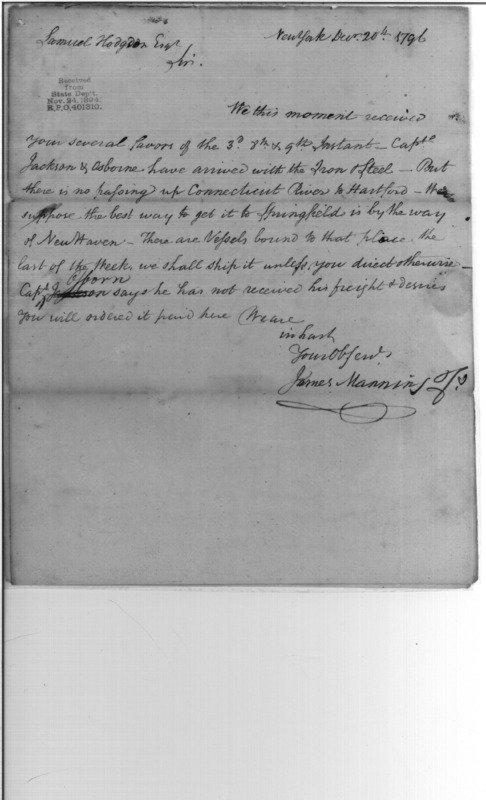 Samuel Hodgdon Esqr
NewYork Decr. 20th 1796
Sir.
Received
from
State Dep't.
Nov. 24, 1894,
R.P.O. 401310.
We this moment received
Your several favors of the 3d. 8th & 9th Instant — Capts
Jackson & Osborne have arrived with the Iron & Steel — But
there is no passing up Connecticut River to Hartford — We
suppose the best way to get it to Springfield is by the way
of NewHaven — There are Vessels bound to that place, the
last of the Week, we shall ship it unless, you direct otherwise —
Osborn
Capt. says he has not received his freight & desires
You will ordered it paid here We are
in hast
Your Obt Servts
James Manning